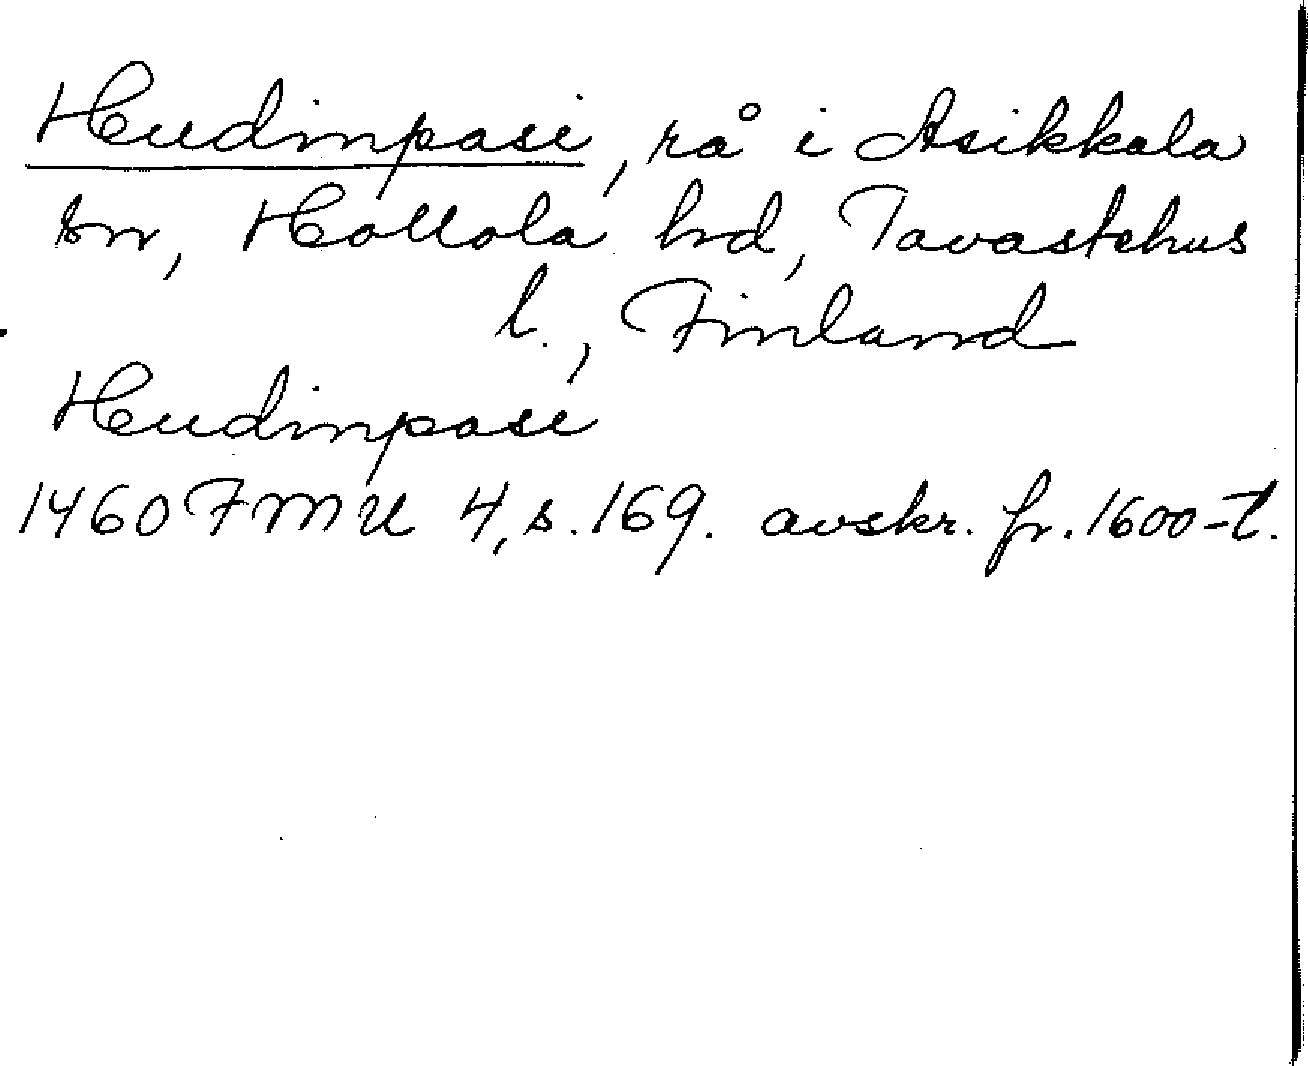 Heudinpasi, rå i Asikkala
sn, Hollola hd, Tavastehus
l., Finland
Heudinpasi
1460 FMU 4, s. 169. avskr. fr. 1600-t.